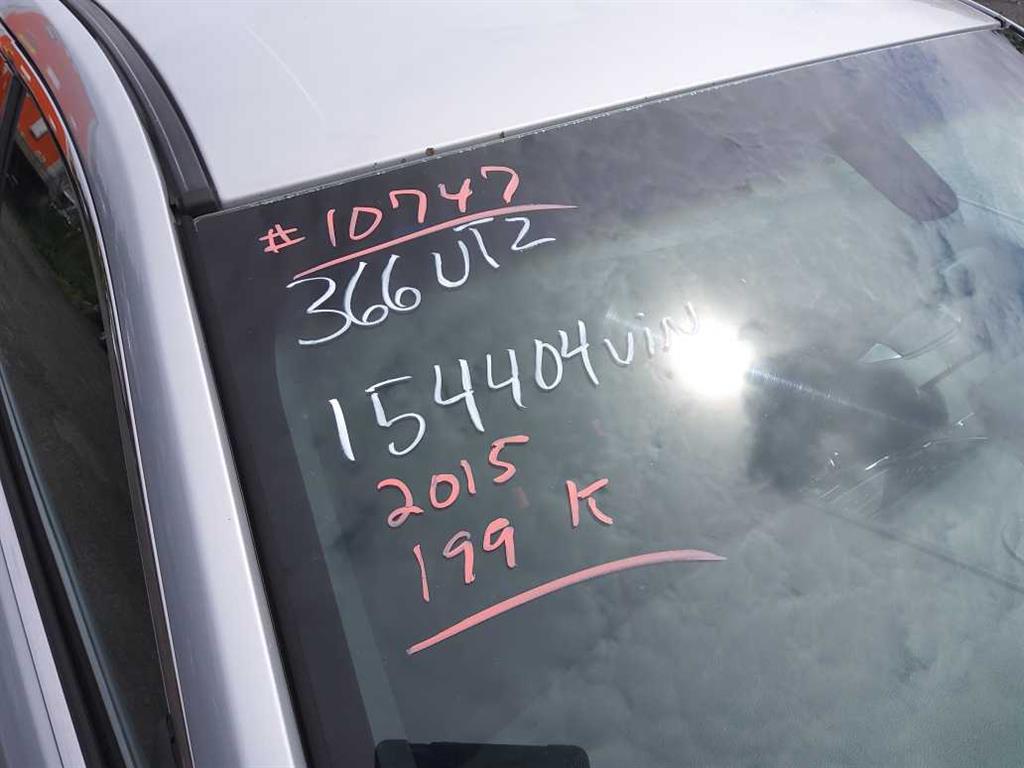 #10747
366UTZ
154404 VIN
2015
199 K